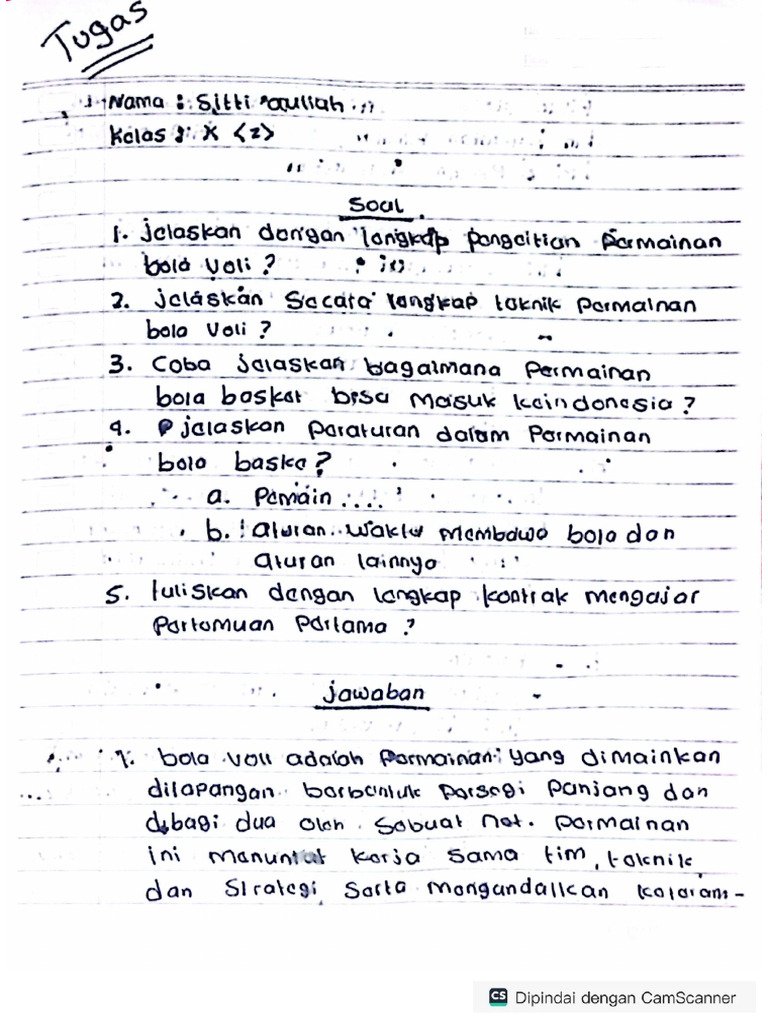 Tugas
Nama : Sitti auliah
Kelas : X <2>
Soal
1. jelaskan dengan lengkap pengeitian permainan
bola voli ?
2. jelaskan Secara lengkap teknik permainan
bola voli ?
3. Coba jelaskan bagaimana permainan
bola basket bisa masuk keindonesia ?
4. jelaskan peraturan dalam permainan
bola baske ?
a. Pemain ....
b. aturan waktu membawa bola dan
aturan lainnya
5. tuliskan dengan lengkap kontrak mengajar
Pertemuan Pertama ?
jawaban
1. bola voli adalah permainan yang dimainkan
dilapangan berbentuk persegi panjang dan
dibagi dua oleh sebuat net. permainan
ini menuntut kerja sama tim, teknik
dan Strategi serta mengandalkan keteram-
CS Dipindai dengan CamScanner